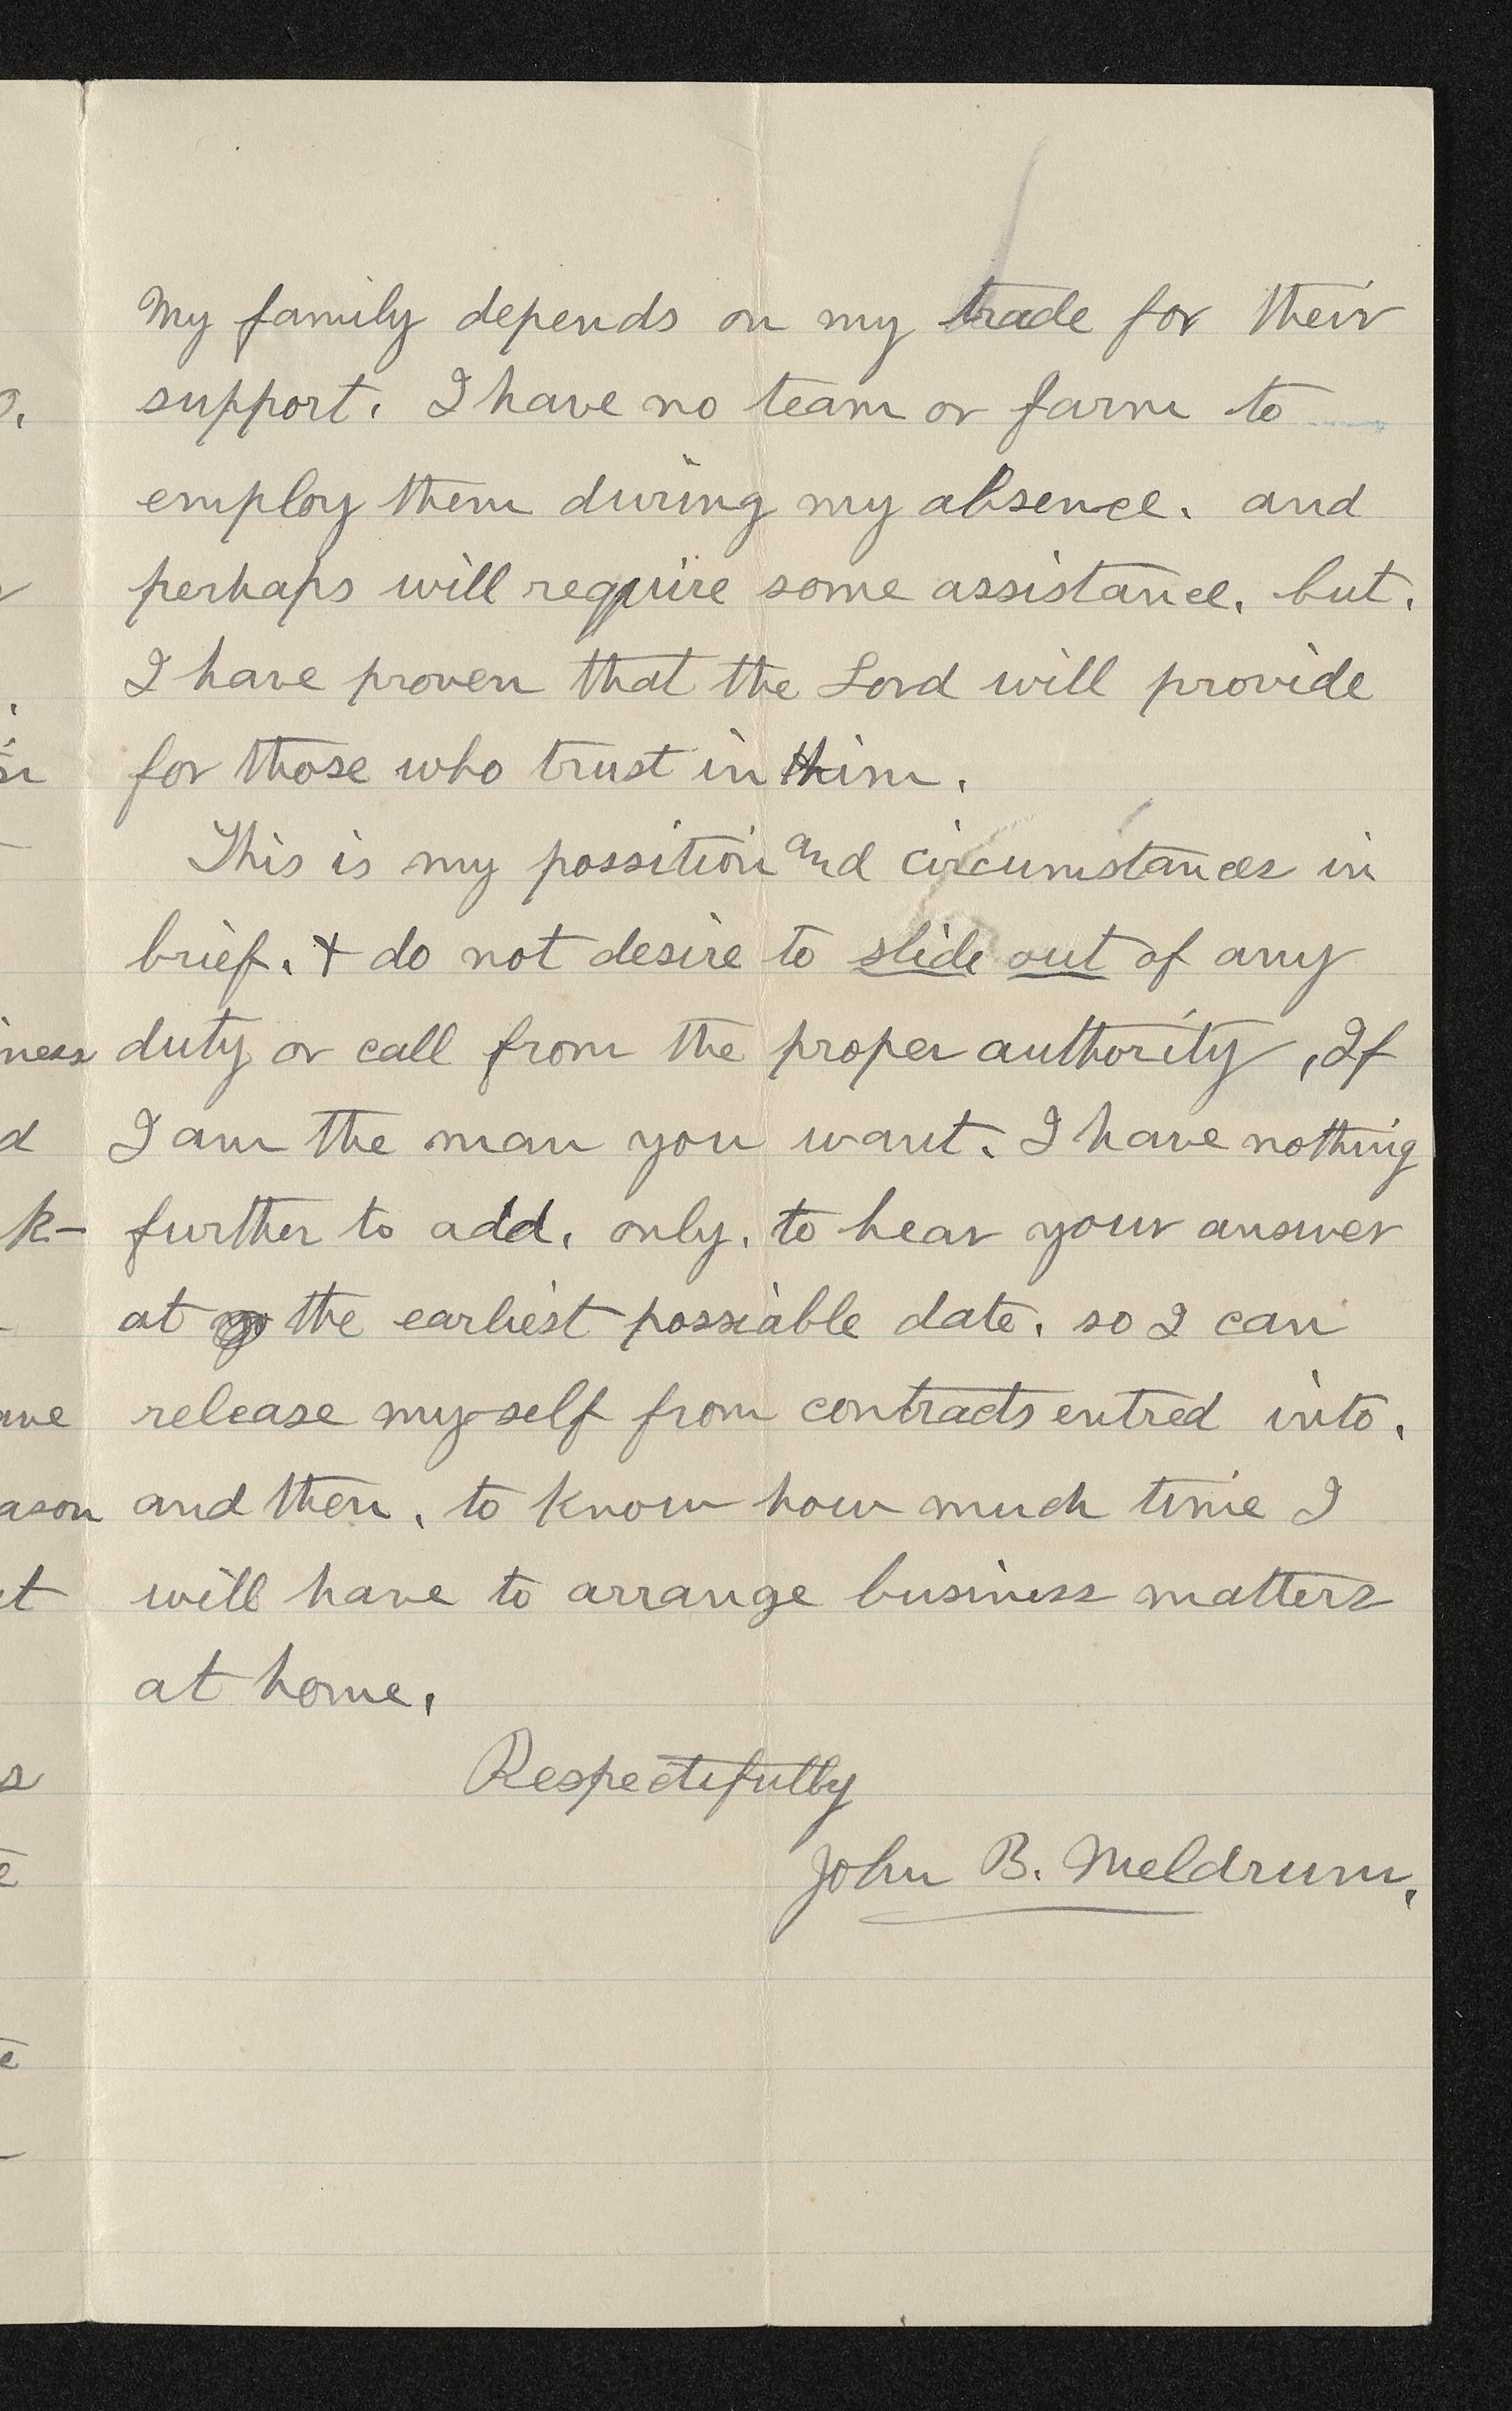 My family depends on my trade for their
support. I have no team or farm to
employ them during my absence. and
perhaps will require some assistance. but.
I have proven that the Lord will provide
for those who trust in him.
This is my possition and circumstances in
brief. & do not desire to slide out of any
duty or call from the proper authority, If
I am the man you want. I have nothing
further to add. only. to hear your answer
at the earliest possiable date. so I can
release my-self from contracts entred into.
and then. to know how much time I
will have to arrange business matters
at home.
Respectifully
John B. Meldrum.